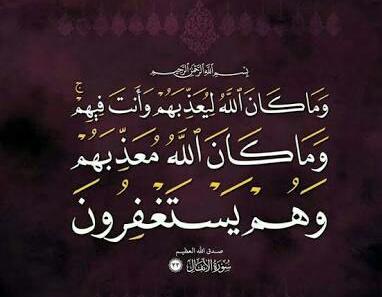 بِسْمِ اللَّهِ الرَّحْمَٰنِ الرَّحِيمِ
وَمَا كَانَ ٱللَّهُ لِيُعَذِّبَهُمْ وَأَنتَ فِيهِمْ ۚ
وَمَا كَانَ ٱللَّهُ مُعَذِّبَهُمْ
وَهُمْ يَسْتَغْفِرُونَ
صدق الله العظيم
سُورَةُ الأَنفَال ٣٣